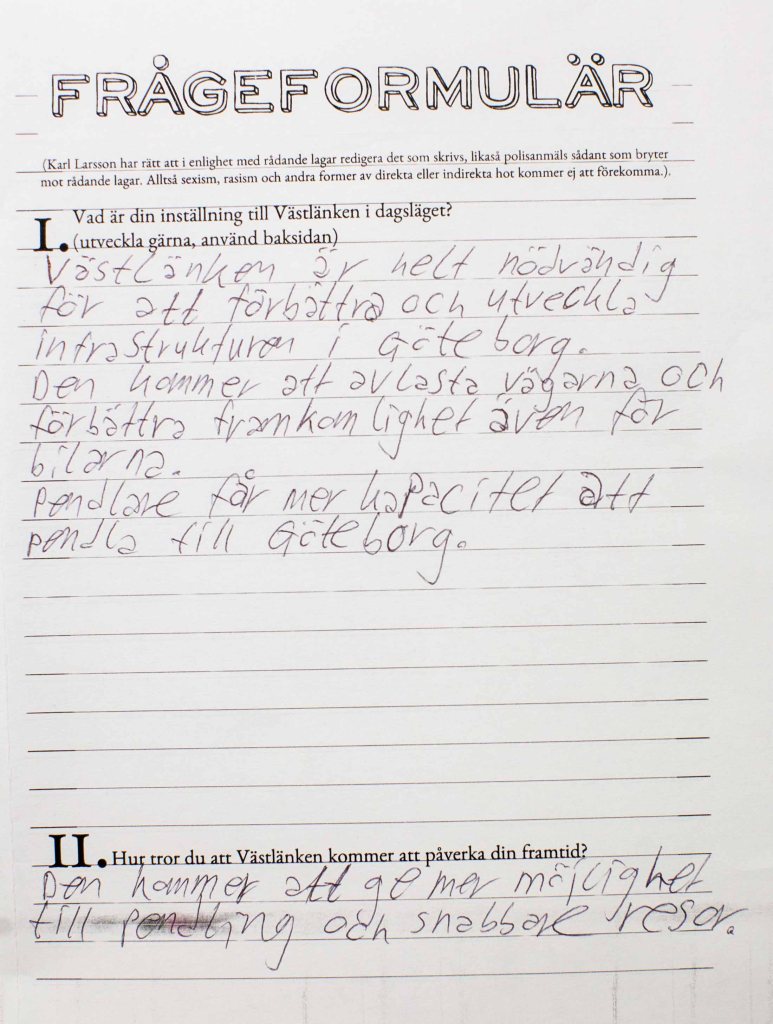 FRÅGEFORMULÄR
(Karl Larsson har rätt att i enlighet med rådande lagar redigera det som skrivs, likaså polisanmäls sådant som bryter
mot rådande lagar. Alltså sexism, rasism och andra former av direkta eller indirekta hot kommer ej att förekomma.).
I. Vad är din inställning till Västlänken i dagsläget?
(utveckla gärna, använd baksidan)
Västlänken är helt nödvändig
för att förbättra och utveckla
infrastrukturen i Göteborg.
Den kommer att avlasta vägarna och
förbättra framkomlighet även för
bilarna.
Pendlare får mer kapacitet att
pendla till Göteborg.
II. Hur tror du att Västlänken kommer att påverka din framtid?
Den kommer att ge mer möjlighet
till pendling och snabbare resor.